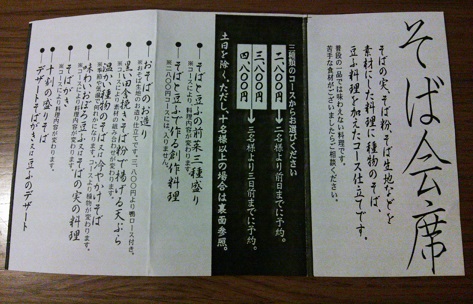 そば会席
そばの実、そば粉、そば生地などを
素材にした料理に種物のそば、
豆ふ料理を加えたコース仕立てです。
普段の一品では味わえない料理です。
苦手な食材がございましたらご相談ください。
三種類のコースからお選びください
二八〇〇円→二名様より前日までに予約。
三八〇〇円→二名様より三日前までに予約。
四八〇〇円→三名様より三日前までに予約。
土日を除く、ただし、十名様以上の場合は裏面参照。
そばと豆ふの前菜三種盛り
※コースにより、料理内容が変わります。
そばと豆ふで作る創作料理
※二八〇〇円コースには、入りません。
おそばのお造り
黒い田舎挽きそば粉で揚げる天ぷら
温かい種物のそば又は冷やかけそば
味わいおぼろ豆ふ又はそばの実の料理
そばがき
十割の盛りそば
デザートそばがき又は豆ふのデザート